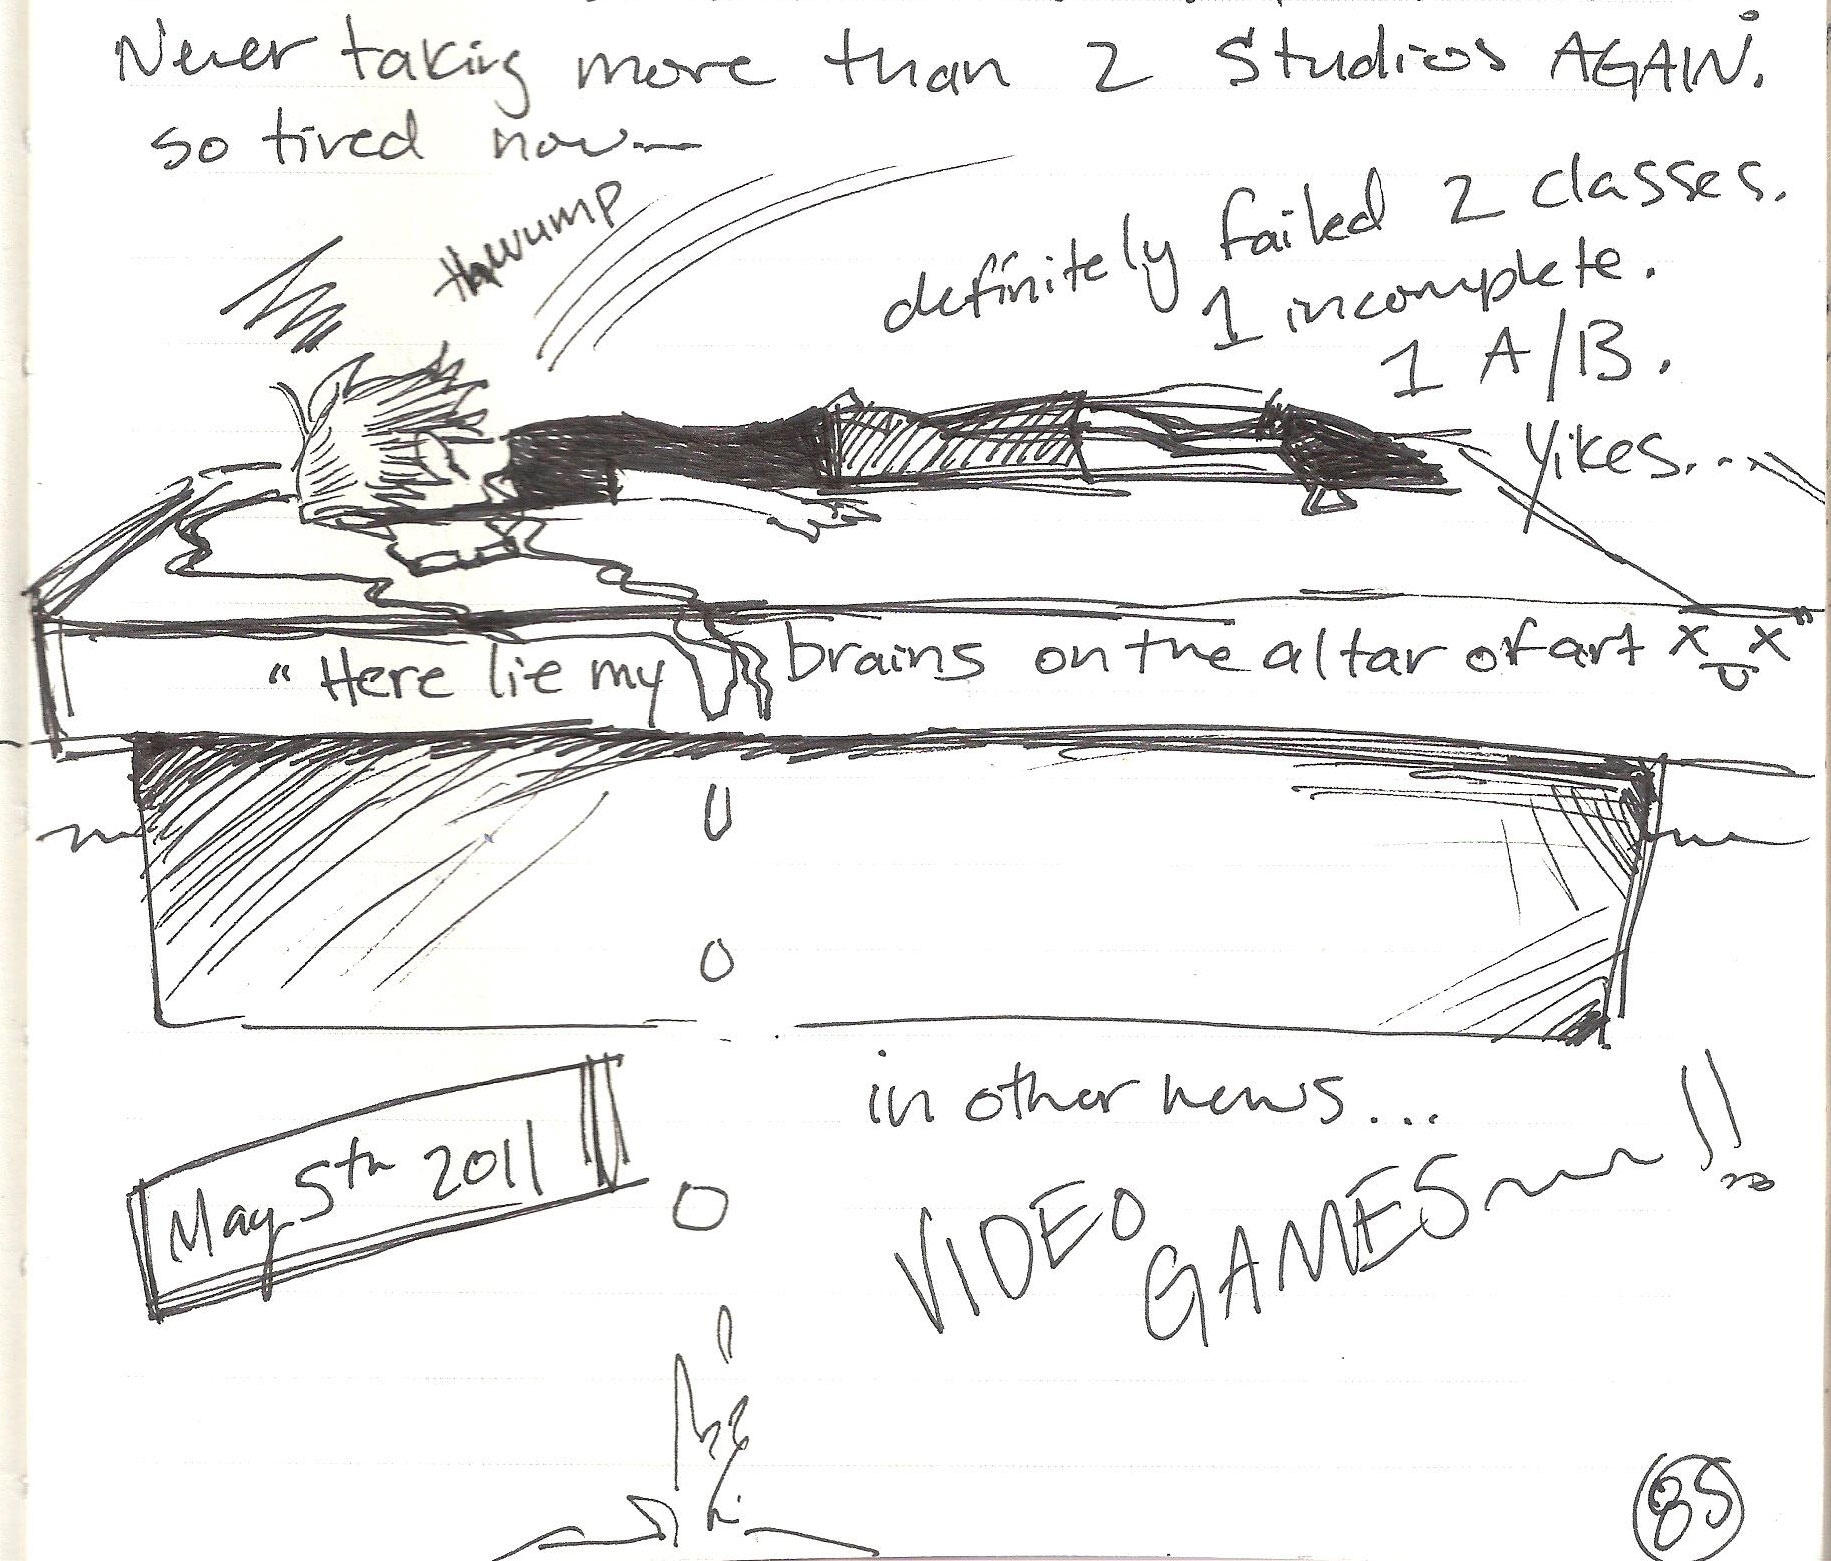 Never taking more than 2 studios AGAIN.
so tired now
thwump
definitely failed 2 classes.
1 incomplete.
1 A/B.
yikes...
"Here lie my brains on the altar of art x_x"
May 5th 2011
in other news...
VIDEO
GAMES !!
85